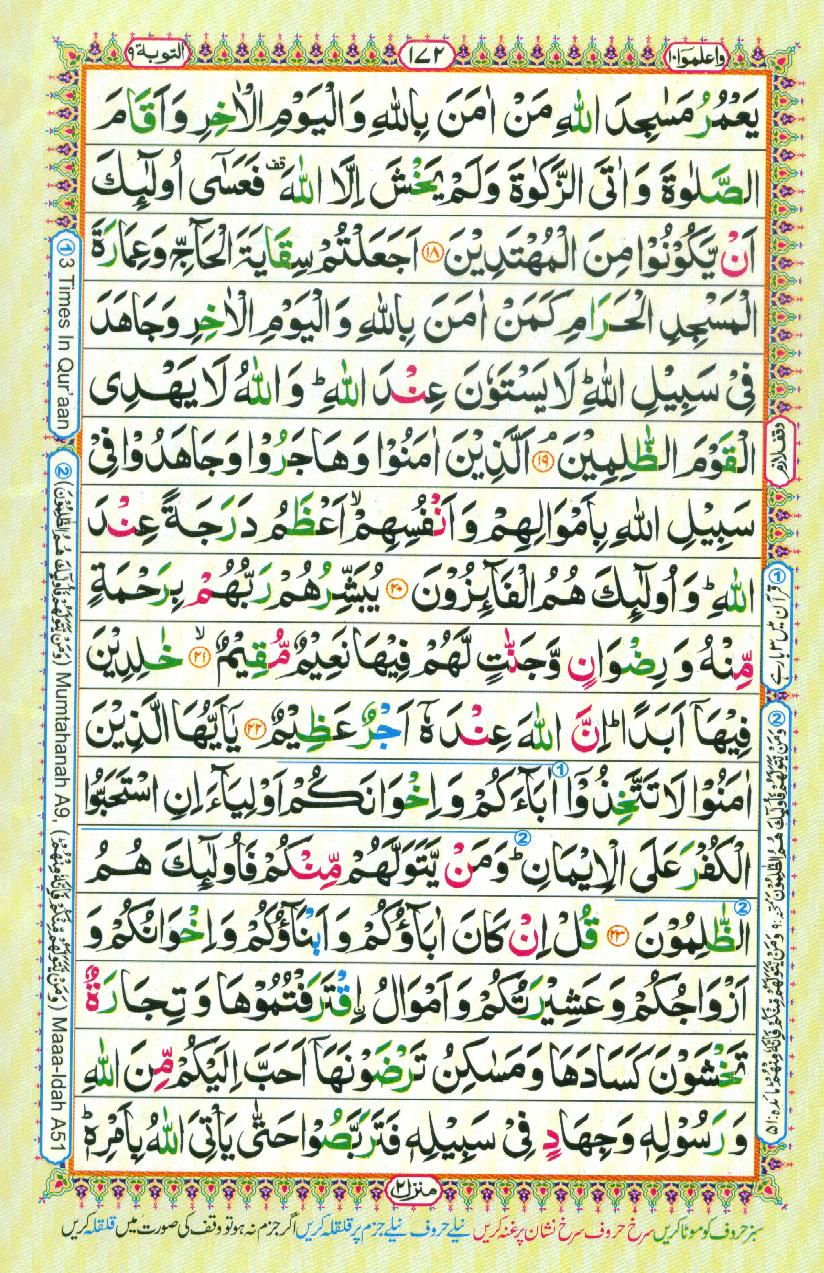 واعلموا ١٠
١٧٢
التوبة ٩
يَعْمُرُ مَسٰجِدَ اللّٰهِ مَنْ اٰمَنَ بِاللّٰهِ وَالْيَوْمِ الْاٰخِرِ وَاَقَامَ
الصَّلٰوةَ وَاٰتَى الزَّكٰوةَ وَلَمْ يَخْشَ اِلَّا اللّٰهَ قف فَعَسٰٓى اُولٰٓئِكَ
اَنْ يَّكُوْنُوْا مِنَ الْمُهْتَدِيْنَ ۝١٨ اَجَعَلْتُمْ سِقَايَةَ الْحَآجِّ وَعِمَارَةَ
الْمَسْجِدِ الْحَرَامِ كَمَنْ اٰمَنَ بِاللّٰهِ وَالْيَوْمِ الْاٰخِرِ وَجَاهَدَ
فِيْ سَبِيْلِ اللّٰهِ ؕ لَا يَسْتَوٗنَ عِنْدَ اللّٰهِ ؕ وَاللّٰهُ لَا يَهْدِى
الْقَوْمَ الظّٰلِمِيْنَ ۝١٩ۘ اَلَّذِيْنَ اٰمَنُوْا وَهَاجَرُوْا وَجَاهَدُوْا فِيْ
سَبِيْلِ اللّٰهِ بِاَمْوَالِهِمْ وَاَنْفُسِهِمْ ۙ اَعْظَمُ دَرَجَةً عِنْدَ
اللّٰهِ ؕ وَاُولٰٓئِكَ هُمُ الْفَآئِزُوْنَ ۝٢٠ يُبَشِّرُهُمْ رَبُّهُمْ بِرَحْمَةٍ
مِّنْهُ وَرِضْوَانٍ وَّجَنّٰتٍ لَّهُمْ فِيْهَا نَعِيْمٌ مُّقِيْمٌ ۝٢١ۙ خٰلِدِيْنَ
فِيْهَآ اَبَدًا ؕ اِنَّ اللّٰهَ عِنْدَهٗٓ اَجْرٌ عَظِيْمٌ ۝٢٢ يٰٓاَيُّهَا الَّذِيْنَ
اٰمَنُوْا لَا تَتَّخِذُوْٓا اٰبَآءَكُمْ وَاِخْوَانَكُمْ اَوْلِيَآءَ اِنِ اسْتَحَبُّوا
الْكُفْرَ عَلَى الْاِيْمَانِ ؕ وَمَنْ يَّتَوَلَّهُمْ مِّنْكُمْ فَاُولٰٓئِكَ هُمُ
الظّٰلِمُوْنَ ۝٢٣ قُلْ اِنْ كَانَ اٰبَآؤُكُمْ وَاَبْنَآؤُكُمْ وَاِخْوَانُكُمْ وَ
اَزْوَاجُكُمْ وَعَشِيْرَتُكُمْ وَاَمْوَالُ ۨاقْتَرَفْتُمُوْهَا وَتِجَارَةٌ
تَخْشَوْنَ كَسَادَهَا وَمَسٰكِنُ تَرْضَوْنَهَآ اَحَبَّ اِلَيْكُمْ مِّنَ اللّٰهِ
وَرَسُوْلِهٖ وَجِهَادٍ فِيْ سَبِيْلِهٖ فَتَرَبَّصُوْا حَتّٰى يَاْتِيَ اللّٰهُ بِاَمْرِهٖ ؕ
منزل ٢
سبز حروف کو موٹا کریں سرخ حروف سرخ نشان پر غنہ کریں نیلے حروف نیلے جزم پر قلقلہ کریں اگر جزم نہ ہو تو وقف کی صورت میں قلقلہ کریں
① 3 Times In Qur'aan
② (وَمَنْ يَّتَوَلَّهُمْ فَاُولٰٓئِكَ هُمُ الظّٰلِمُوْنَ) Mumtahanah A9, (وَمَنْ يَّتَوَلَّهُمْ مِّنْكُمْ فَاِنَّهٗ مِنْهُمْ) Maaa-Idah A51
وقف لازم
① قرآن میں ۳ بار ہے
② وَمَنْ يَّتَوَلَّهُمْ فَاُولٰٓئِكَ هُمُ الظّٰلِمُوْنَ وَمَنْ يَّتَوَلَّهُمْ مِّنْكُمْ فَاِنَّهٗ مِنْهُمْ مائدہ: ۵۱